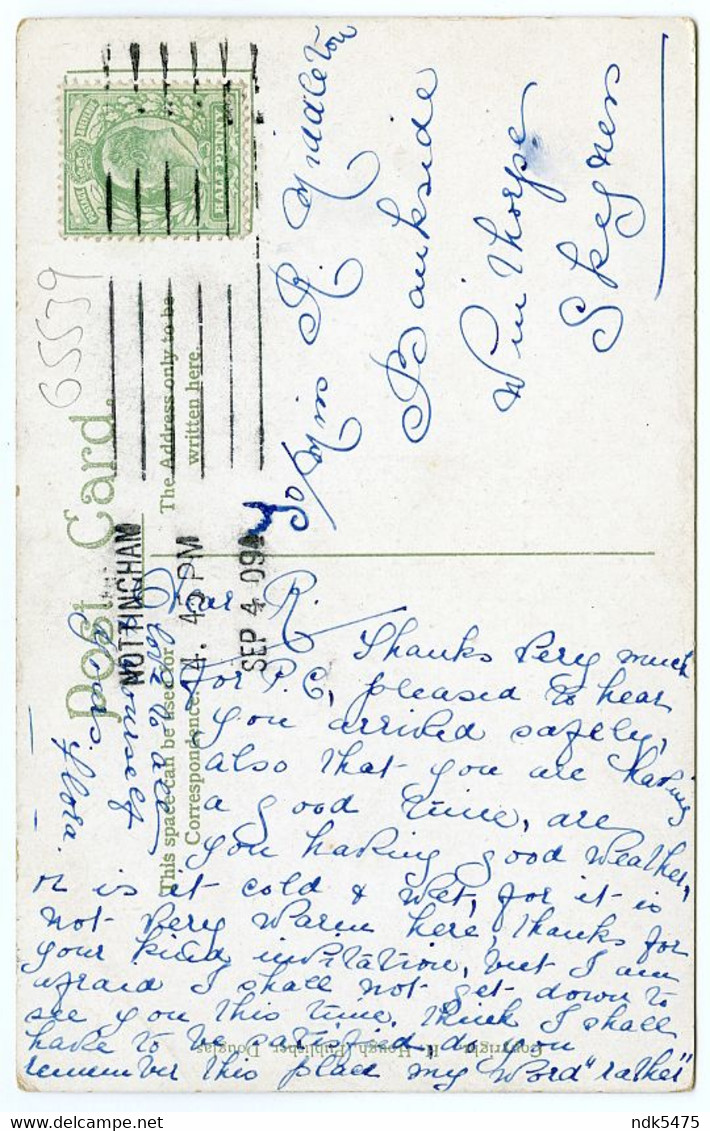 Post Card.
This space can be used for
Correspondence
The Address only to be
written here.
POSTAGE
HALF PENNY
NOTTINGHAM
4.45 PM
SEP 4 09
65539
To/ Miss R. Middleton
Bankside
Winthorpe
Skegness
Dear R.
Thanks very much
for P.C, pleased to hear
you arrived safely,
also that you are having
a good time, are
you having good weather,
or is it cold & wet, for it is
not very warm here, thanks for
your kind invitation, but I am
afraid I shall not get down to
see you this time. Think I shall
have to be satisfied, do you
remember this place my word "rather"
love to all
yourself
Flora.
Copyright R. Hough Publisher Douglas
delcampe.net
ndk5475